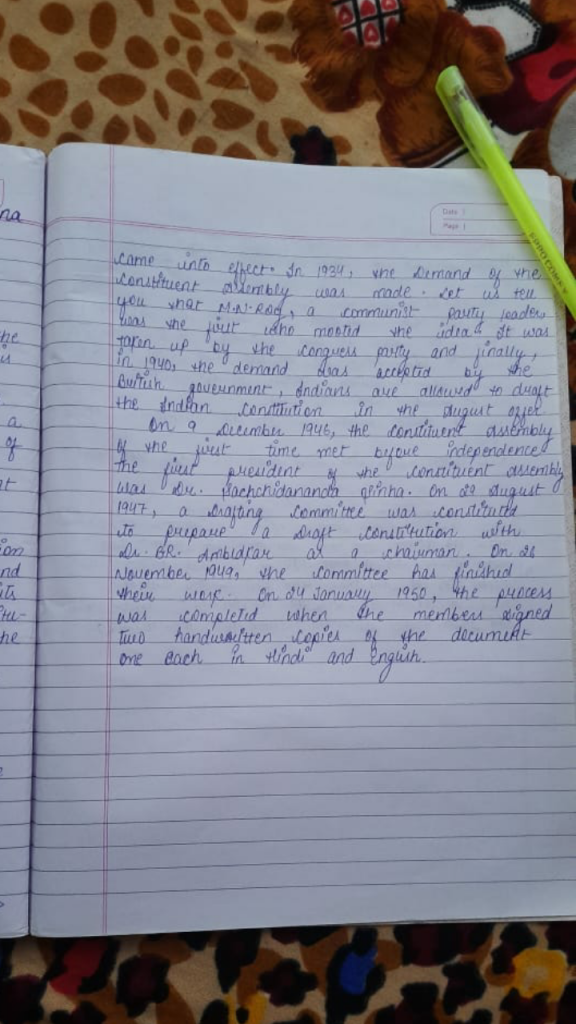 na
Date :
Page :
came into effect. In 1934, the Demand of the
constituent assembly was made. Let us tell
you that M.N. Roy, a communist party leader
was the first who mooted the idea. It was
taken up by the congress party and finally,
in 1940, the demand was accepted by the
British government, Indians are allowed to draft
the Indian Constitution in the August offer
On 9 December 1946, the constituent assembly
of the first time met before independence
the first president of the constituent assembly
was Dr. Sachchidananda Sinha. On 29 August
1947, a Drafting committee was constituted
to prepare a Draft Constitution with
Dr. BR. Ambedkar as a chairman. On 26
November 1949, the committee has finished
their work. On 24 January 1950, the process
was completed when the members signed
two handwritten copies of the document
one each in Hindi and English.
he
is
a
of
at
ion
nd
its
he